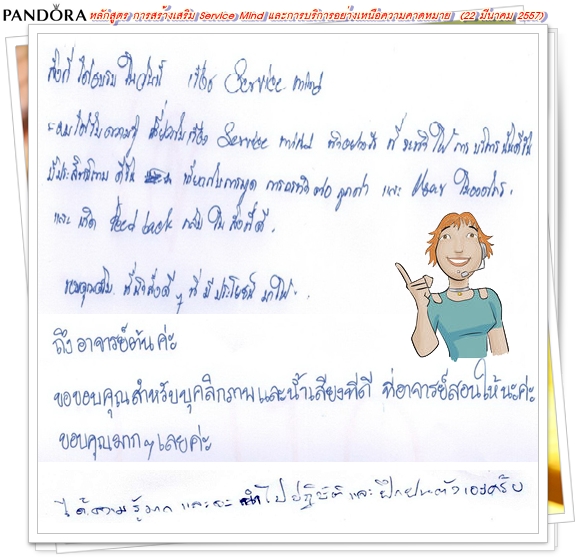 PANDORA
หลักสูตร การสร้างเสริม Service Mind และการบริการอย่างเหนือความคาดหมาย (22 มีนาคม 2557)
สิ่งที่ได้อบรมในวันนี้ เรื่อง Service mind
ได้รับความรู้ เกี่ยวกับเรื่อง Service mind ที่จะทำให้การบริการนั้นดีขึ้น
มีประสิทธิภาพ ดีขึ้น เกี่ยวกับการพูด ลูกค้า และ ในองค์กร.
และ เกิด feed back กลับในสิ่งที่ดี.
ขอบคุณ ที่นำสิ่งดี ๆ ที่มีประโยชน์ มาให้.
ถึง อาจารย์ต้นค่ะ
ขอขอบคุณสำหรับบุคลิกภาพและน้ำเสียงที่ดี ที่อาจารย์สอนให้นะค่ะ
ขอบคุณมาก ๆ เลยค่ะ
ได้ความรู้มาก และจะนำไปปฏิบัติและฝึกฝนตัวเองครับ